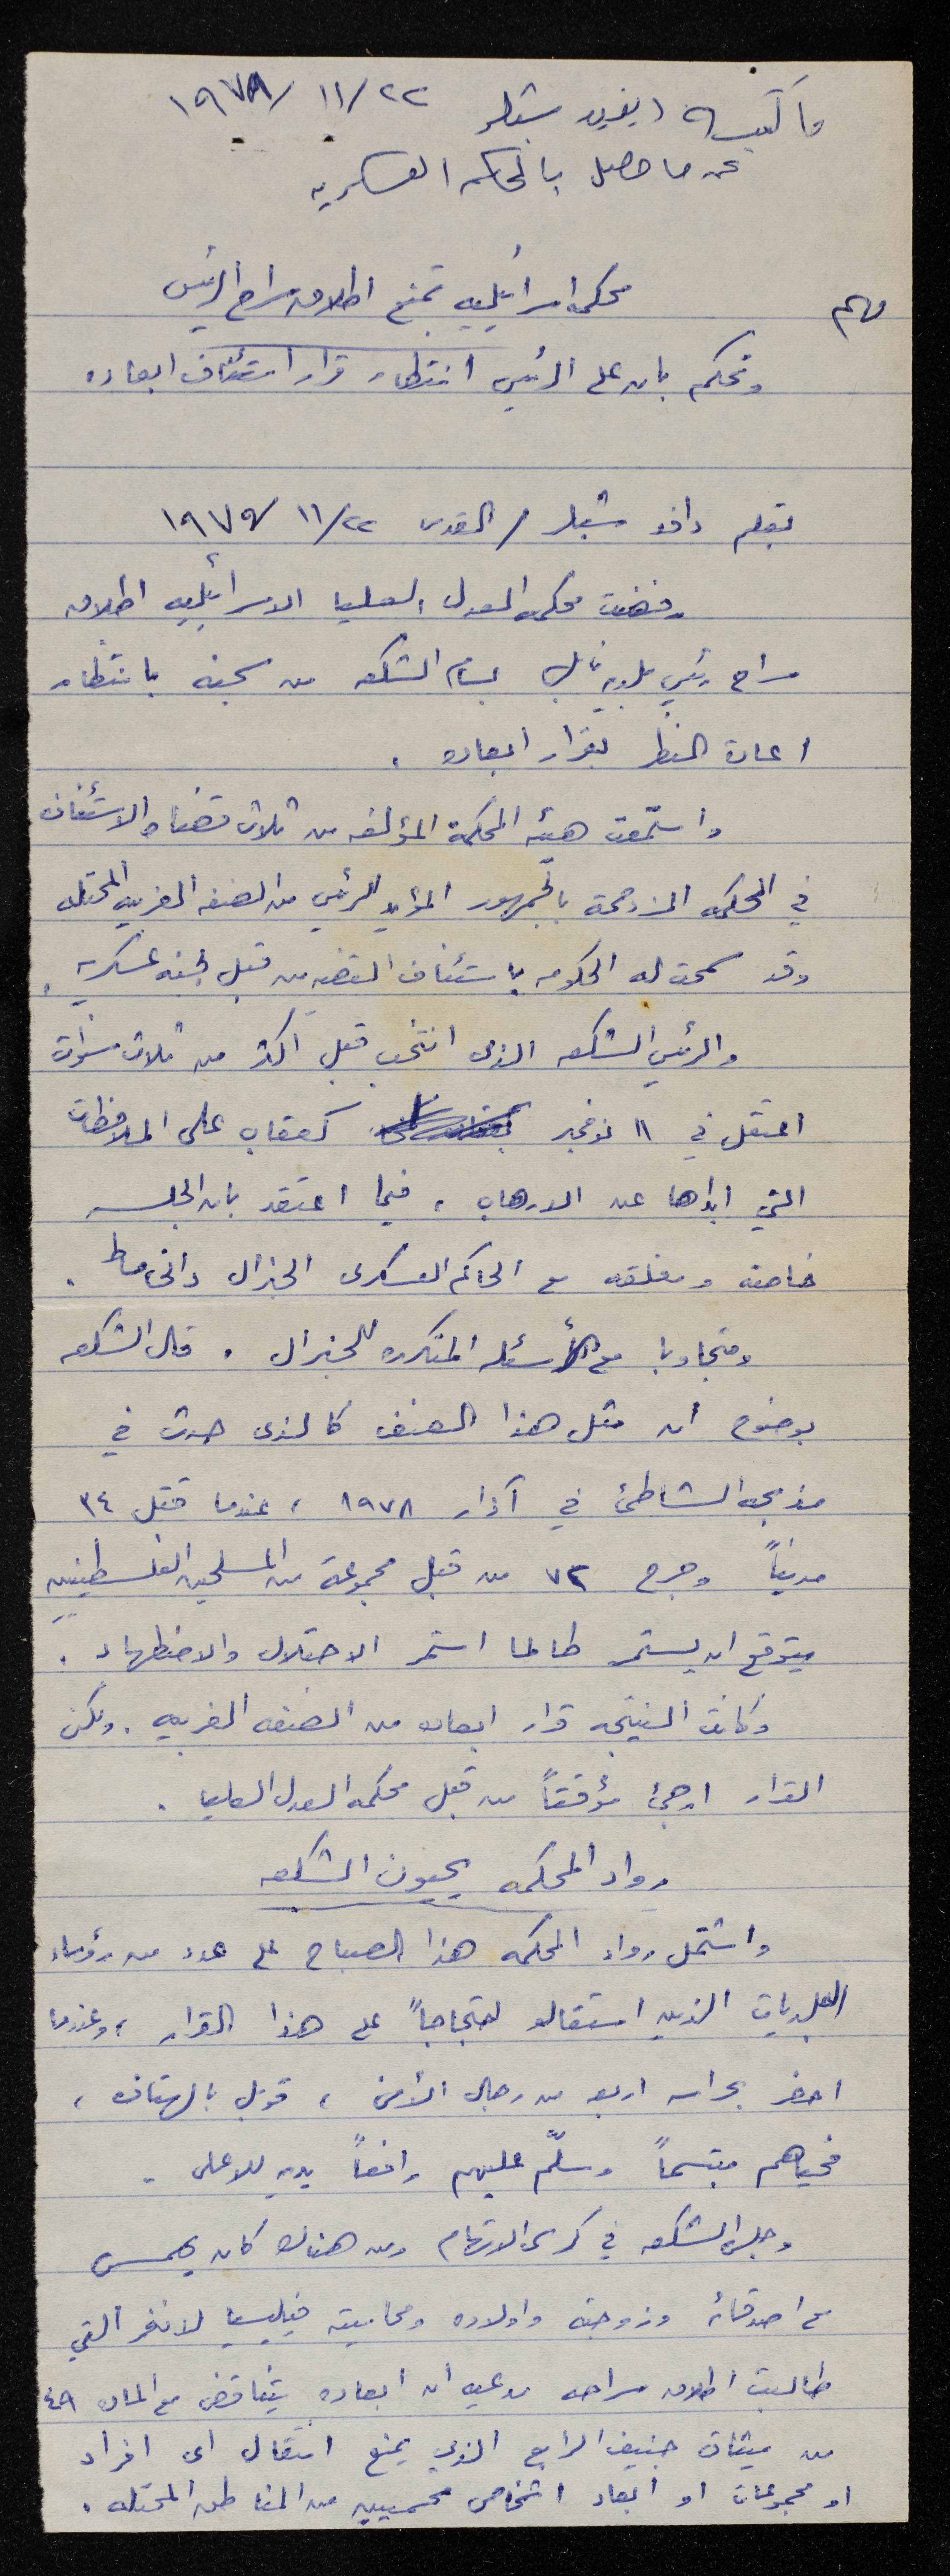 ما كتبه ديفيد شبلر ٢٢/١١/١٩٧٩
عن ما حصل بالمحاكم العسكريه
مهم
محكمه اسرائيليه تمنع اطلاق سراح الرئيس
وتحكم بان على الرئيس انتظار قرار استئناف ابعاده
بقلم دافد شبلر / القدس ٢٢/١١/١٩٧٩
رفضت محكمه العدل العليا الاسرائيليه اطلاق
سراح رئيس بلديه نابلس بسام الشكعه من سجنه بانتظار
اعادة النظر بقرار ابعاده .
واستمعت هيئه المحكمة المؤلفه من ثلاث قضاه الاستئناف
في المحكمه المزدحمة بالجمهور المؤيد للرئيس من الضفه الغربيه المحتله
وقد سمحت له الحكومه باستئناف القضيه من قبل لجنه عسكريه .
والرئيس الشكعه الذى انتخب قبل اكثر من ثلاث سنوات
اعتقل في ١١ نوفمبر كعقاب على الملاحظات
التي ابداها عن الارهاب ، فيما اعتقد بان الجلسه
خاصه ومغلقه مع الحاكم العسكرى الجنرال دانى ماط .
ومتجاوبا مع الأسئله المتكرره للجنرال . قال الشكعه
بوضوح ان مثل هذا العنف كالذى حدث في
مذبحه الشاطئ في آذار ١٩٧٨ ، عندما قتل ٣٤
مدنياً وجرح ٧٢ من قبل مجموعة من المسلحين الفلسطينيين
يتوقع ان يستمر طالما استمر الاحتلال والاضطهاد .
وكانت النتيجه قرار ابعاده من الضفه الغربيه . ولكن
القرار ارجئ مؤقتاً من قبل محكمه العدل العليا .
رواد المحكمه يحيون الشكعه
واشتمل رواد المحكمه هذا الصباح على عدد من رؤساء
البلديات الذين استقالو احتجاجاً على هذا القرار ، وعندما
احضر بحراسه اربعه من رجال الأمن ، قوبل بالهتاف ،
فحياهم مبتسماً وسلّم عليهم رافعاً يديه للاعلى .
وجلس الشكعه في كرسى الاتهام ومن هناك كان يهمس
مع اصدقائه وزوجته واولاده ومحاميته فيليسيا لانغر التي
طالبت اطلاق سراحه مدعيه ان ابعاده يتناقض مع الماده ٤٩
من ميثاق جنيف الرابع الذي يمنع انتقال اى افراد
او مجموعات او ابعاد اشخاص محميين من المناطق المحتله .